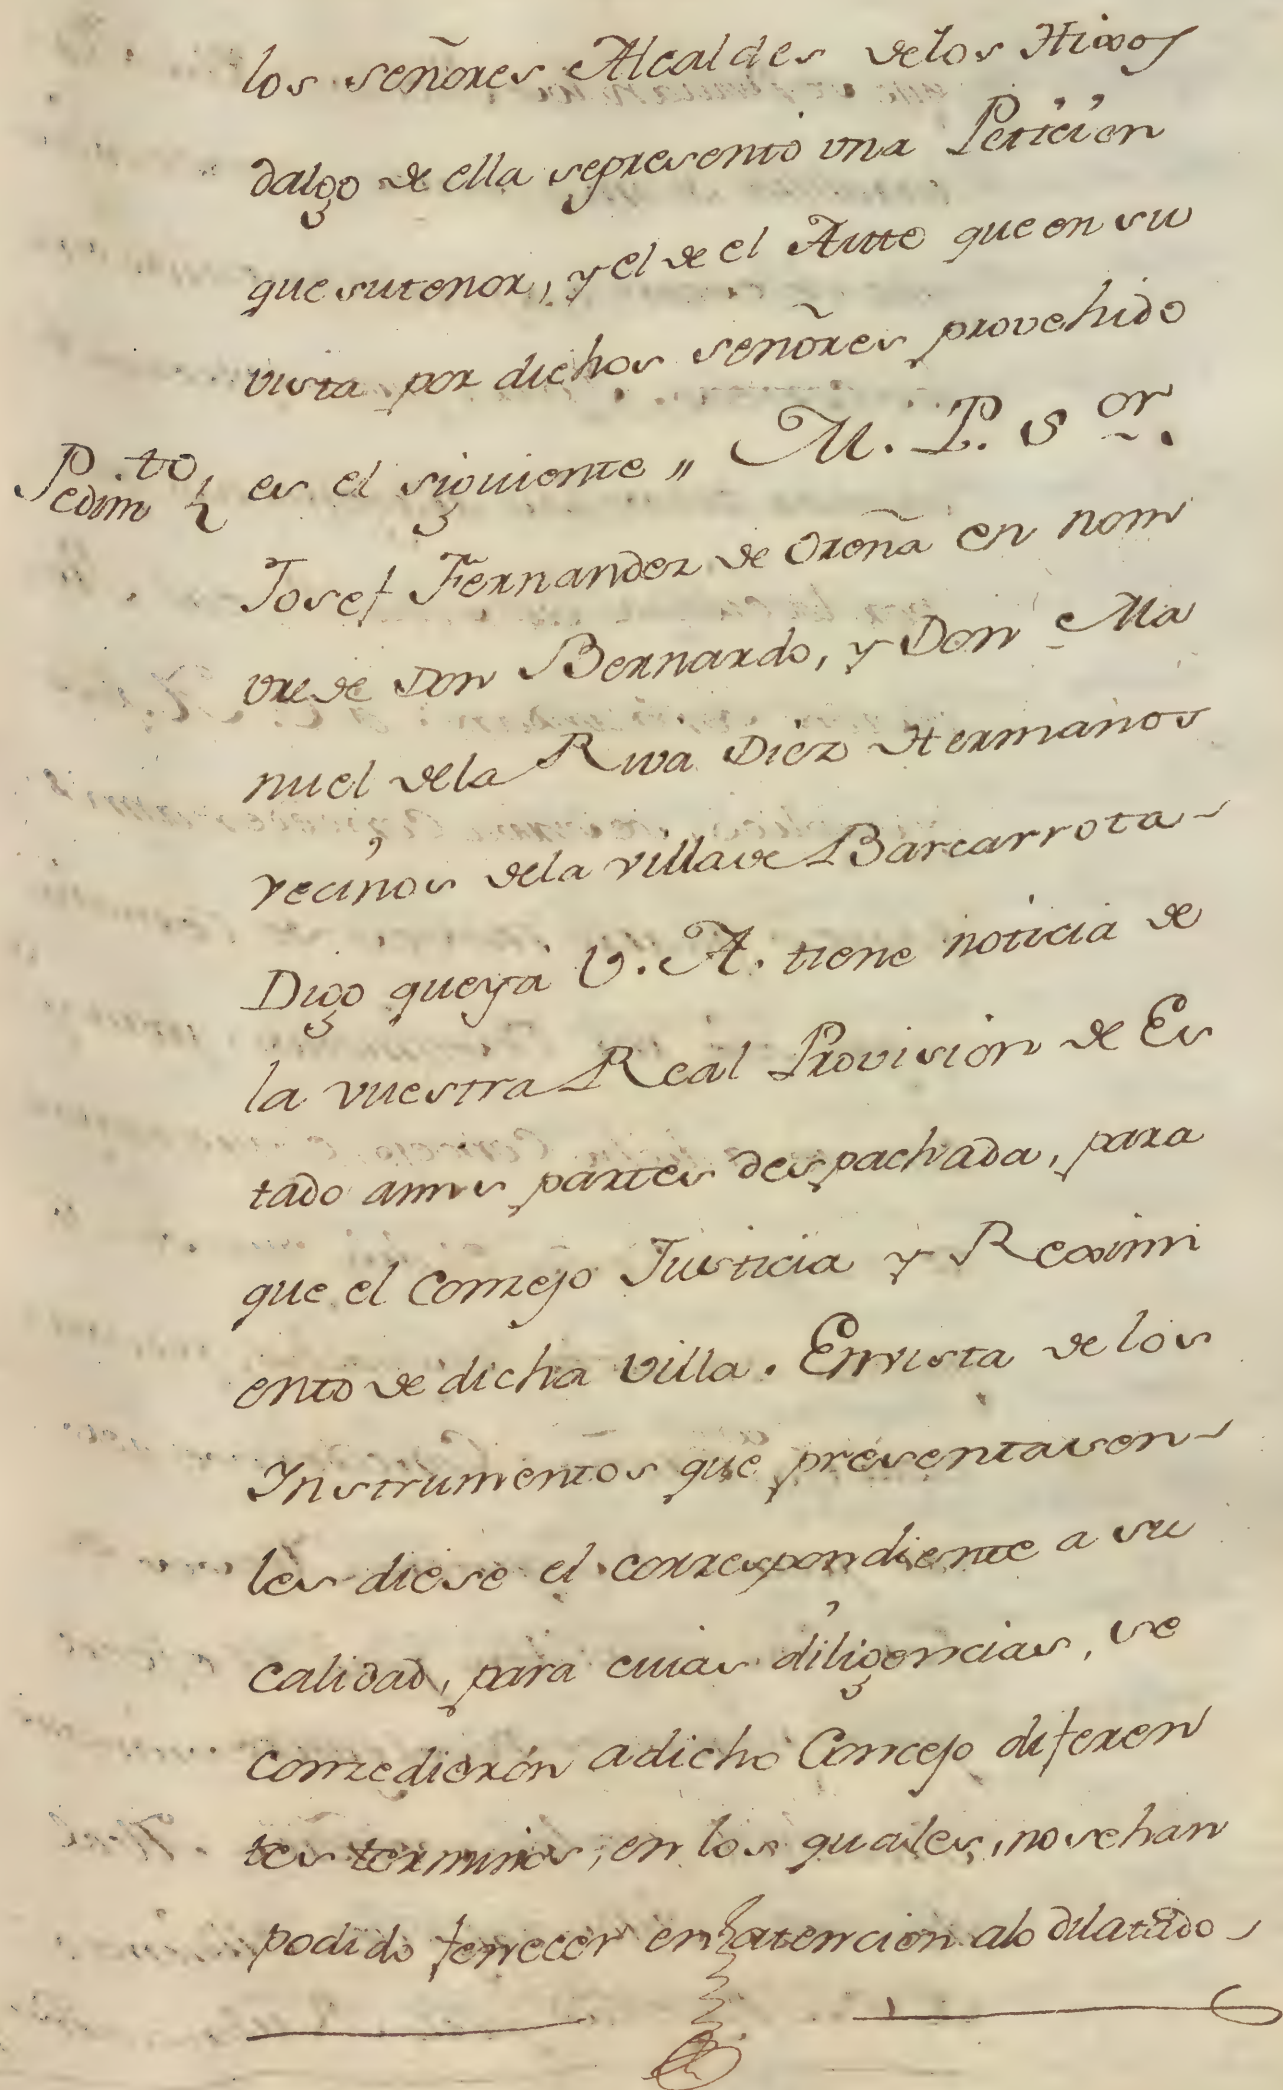 los señores Alcaldes de los Hixos
dalgo de ella se presentó una Petición
que su tenor, y el de el Autto que en su
vista por dichos señores provehido
Pedim.to es el siguiente „ M. P. S.or
Josef Fernandez de Oreña en nom
vre de Don Bernardo, y Don Ma
nuel de la Riva Diez Hermanos
vecinos de la villa de Barcarrota-
Digo que ya V. A. tiene noticia de
la vuestra Real Provision de Es
tado a mis partes despachada, para
que el Conzejo Justicia y Reximi
ento de dicha Villa. En vista de los
Instrumentos que presentasen-
les diese el correspondiente a su
calidad, para cuias diligencias, se
conzedieron a dicho Concejo diferen
tes terminos, en los quales, no se han
podido fenecer en atencion a lo dilatado-